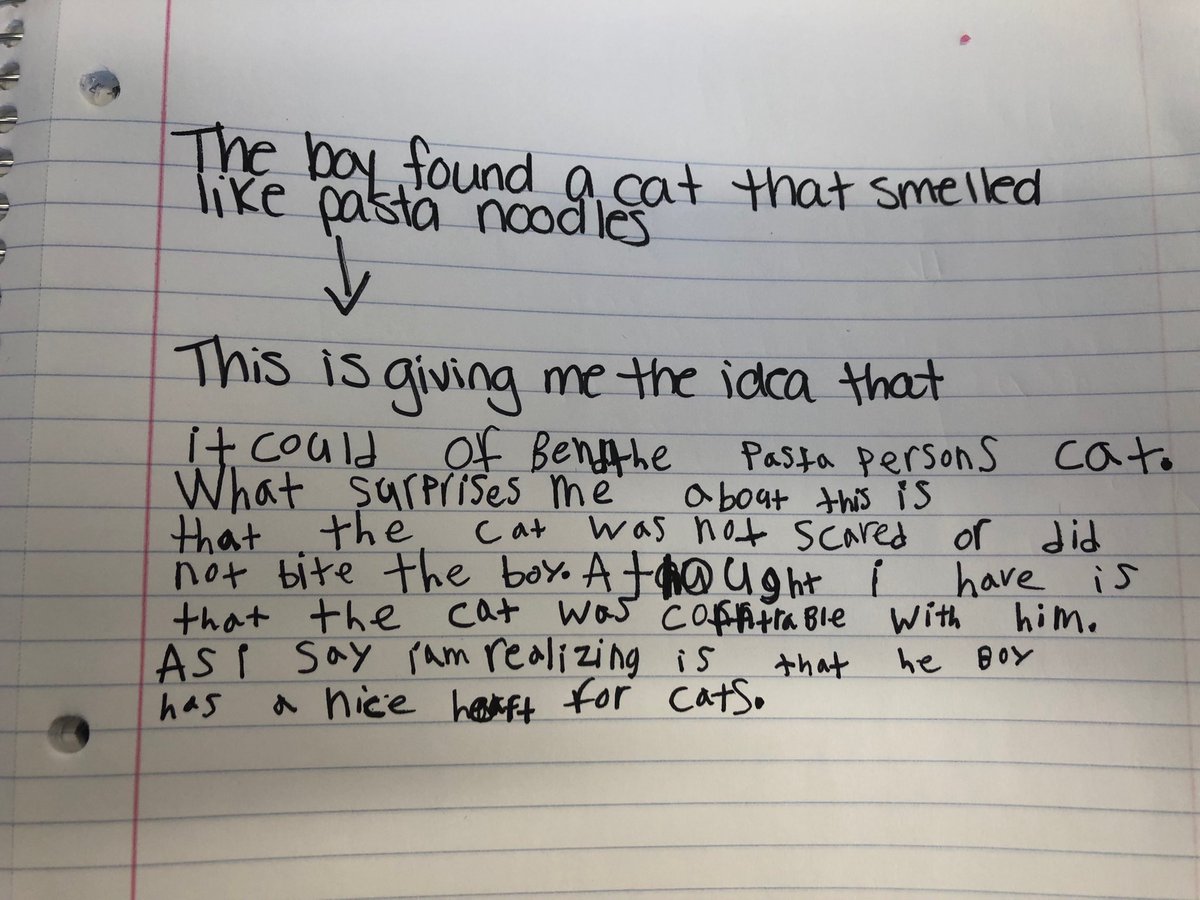 The boy found a cat that smelled
like pasta noodles
This is giving me the idea that
it could of Ben the pasta persons cat.
What surprises me about this is
that the cat was not scared or did
not bite the boy. A thought i have is
that the cat was with him.
As I say i am realizing is that he Boy
has a nice for cats.